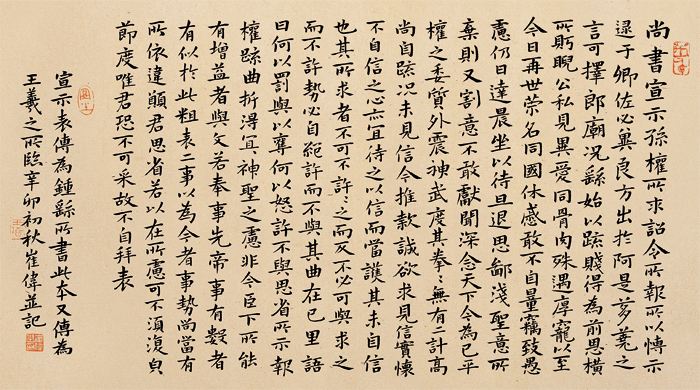 尚書宣示孫權所求詔令所報所以博示
逮于卿佐必冀良方出於阿是芻蕘之
言可擇郎廟況繇始以疏賤得為前恩橫
所盱睨公私見異愛同骨肉殊遇厚寵以至
今日再世榮名同國休慼敢不自量竊致愚
慮仍日達晨坐以待旦退思鄙淺聖意所
棄則又割意不敢獻聞深念天下今為已平
權之委質外震神武度其拳〻無有二計高
尚自疏況未見信今推款誠欲求見信實懷
不自信之心亦宜待之以信而當護其未自信
也其所求者不可不許〻之而反不必可與求之
而不許勢必自絕許而不與其曲在己里語
曰何以罰與以奪何以怒許不與思省所示報
權疏曲折得宜〻神聖之慮非今臣下所能
有增益昔與文若奉事先帝事有數者
有似於此粗表二事以為今者事勢尚當有
所依違願君思省若以在所慮可不須復㒵
節度唯君恐不可采故不自拜表
宣示表傳為鍾繇所書此本又傳為
王羲之所臨辛卯初秋崔偉並記